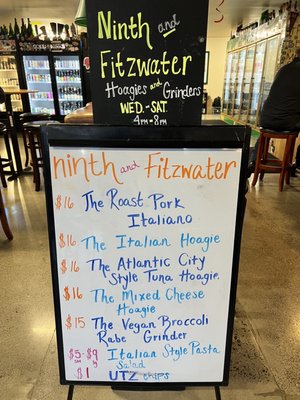 Ninth and
Fitzwater
Hoagies and Grinders
WED.-SAT
4pm-8pm
ninth and Fitzwater
$16 The Roast Pork
Italiano
$16 The Italian Hoagie
$16 The Atlantic City
Style Tuna Hoagie
$16 The Mixed Cheese
Hoagie
$15 The Vegan Broccoli
Rabe Grinder
$5-$9 Italian Style Pasta
Salad
$1 UTZ chips